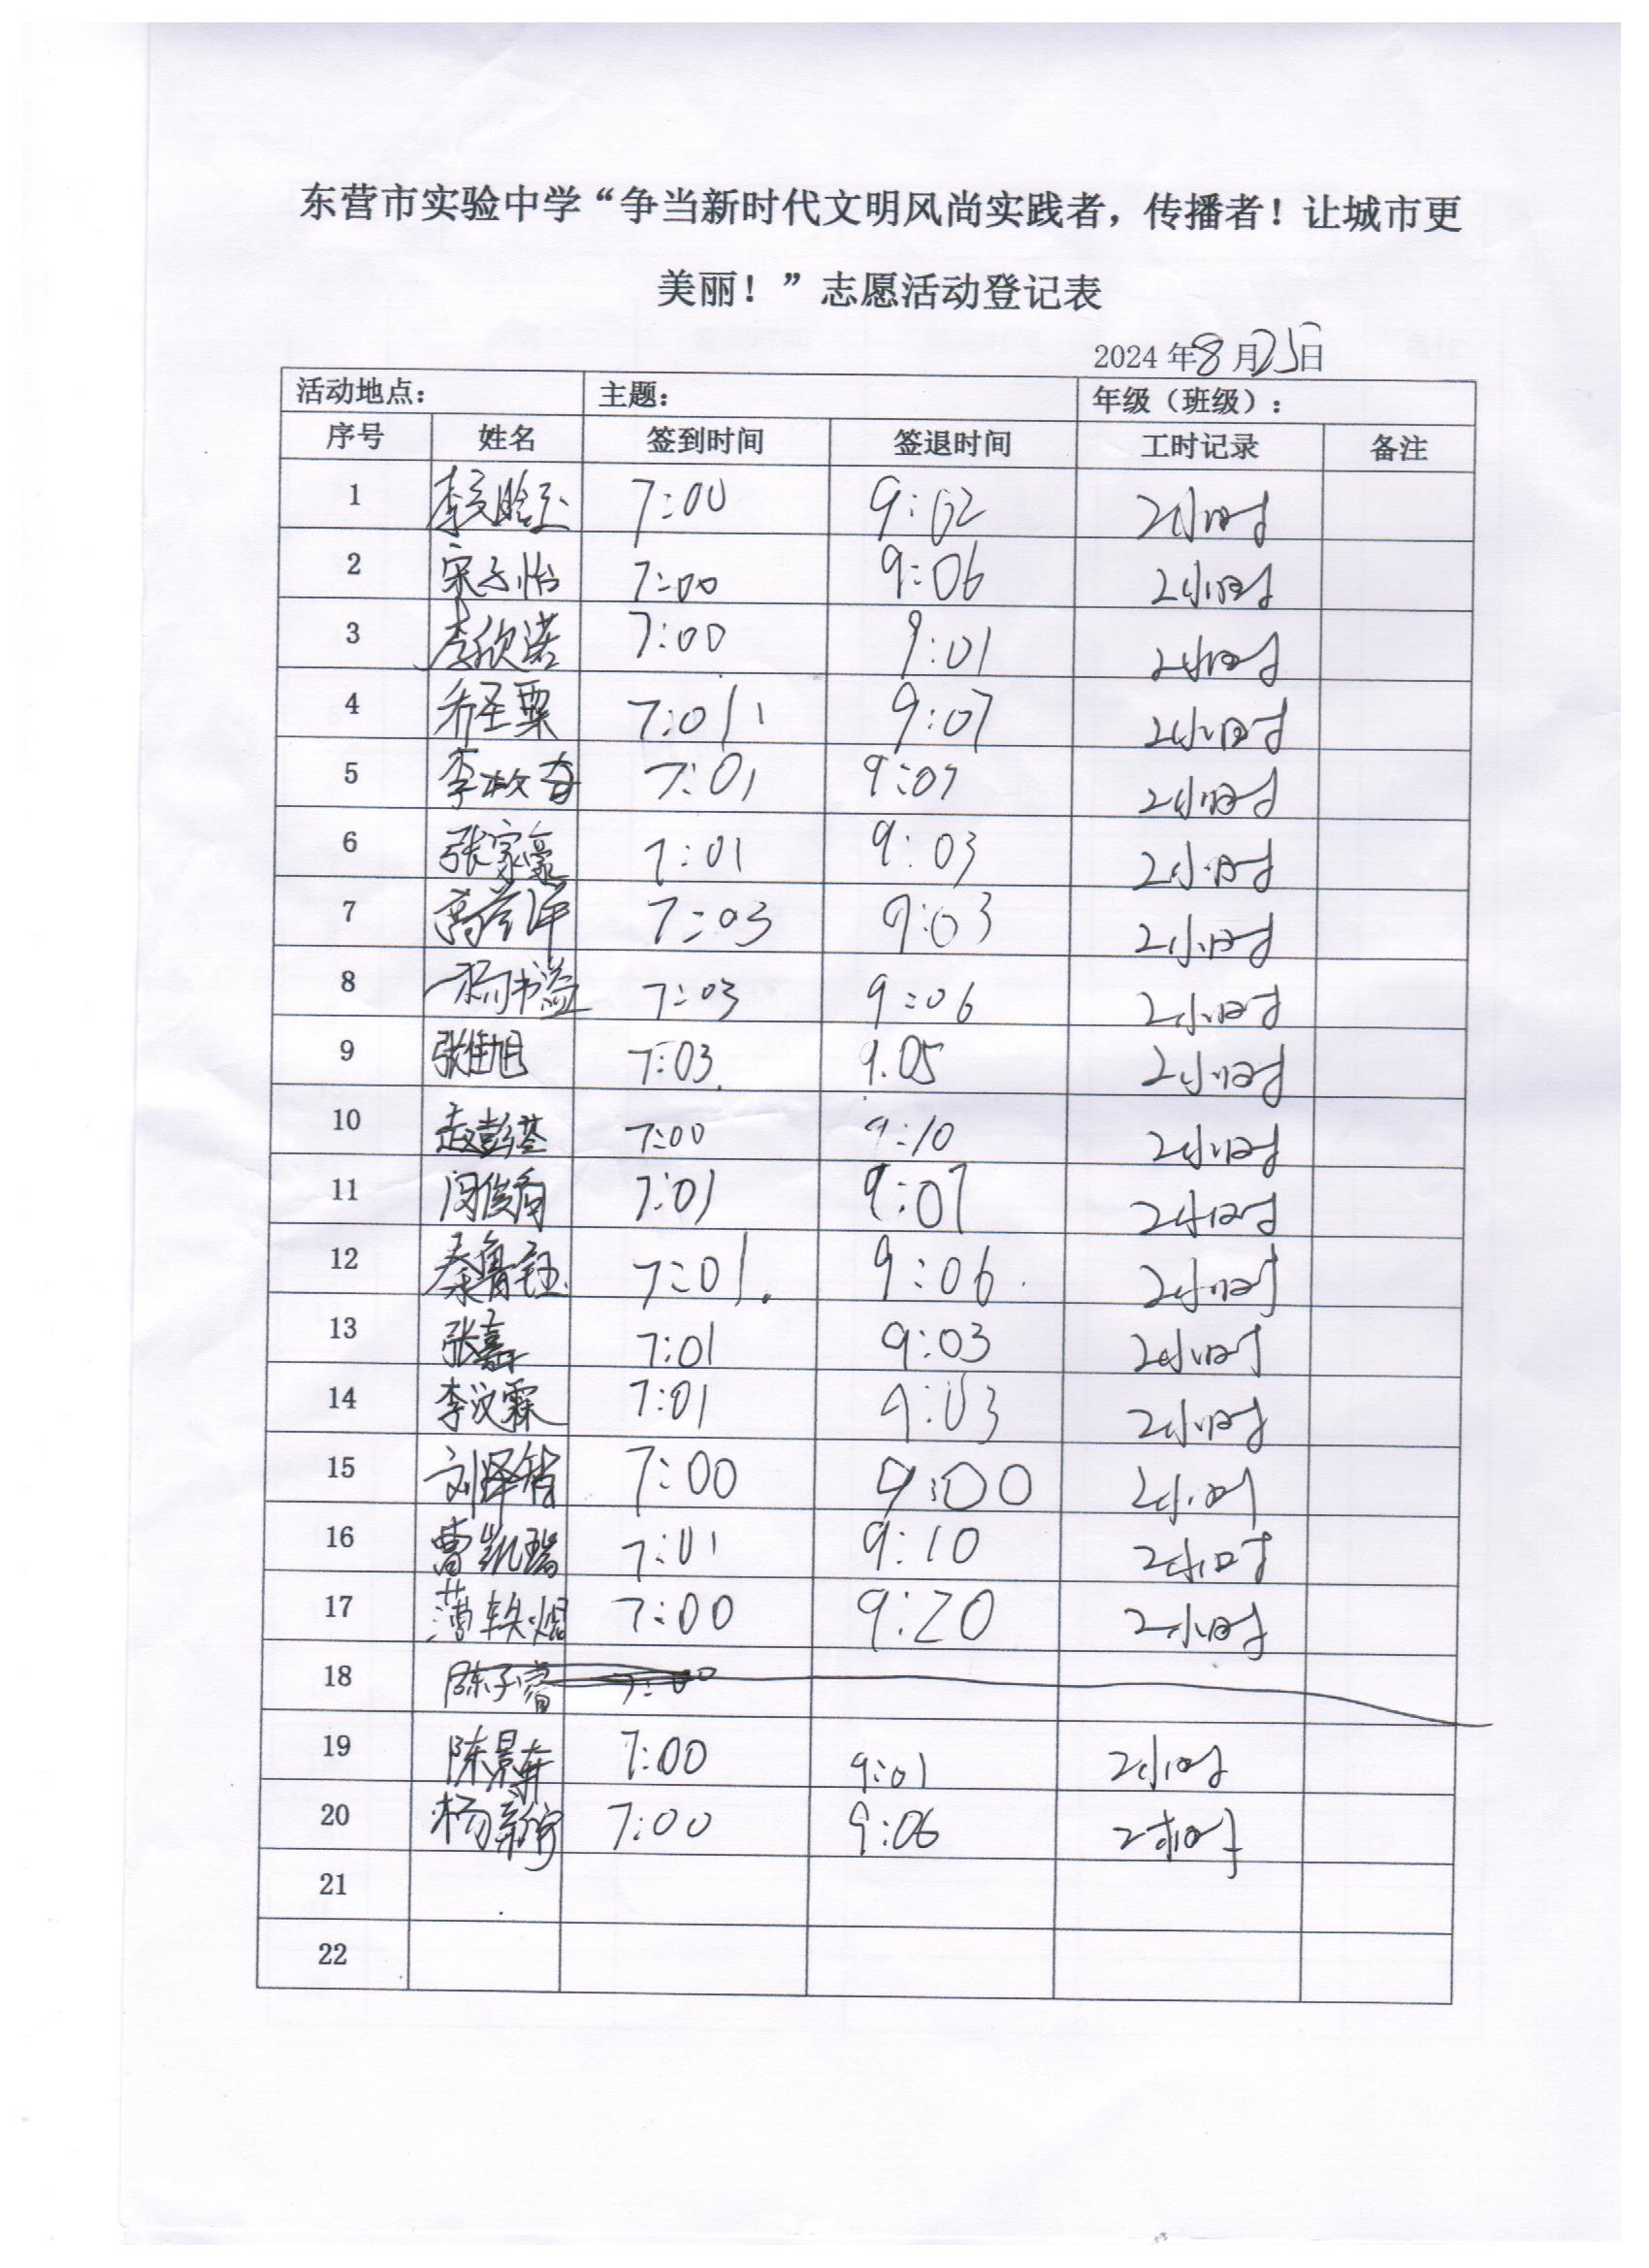 东营市实验中学“争当新时代文明风尚实践者，传播者！让城市更
美丽！”志愿活动登记表
2024年8月25日
活动地点： 主题： 年级（班级）：
序号 姓名 签到时间 签退时间 工时记录 备注
1 7:00 9:02 2小时
2 宋子怡 7:00 9:06 2小时
3 李欣诺 7:00 9:01 2小时
4 乔圣粟 7:01 9:07 2小时
5 7:01 9:07 2小时
6 张家豪 7:01 9:03 2小时
7 7:03 9:03 2小时
8 杨书溢 7:03 9:06 2小时
9 张佳旭 7:03 9.05 2小时
10 赵彭基 7:00 9:10 2小时
11 闫俊甫 7:01 9:07 2小时
12 秦鲁钰 7:01 9:06 2小时
13 张嘉 7:01 9:03 2小时
14 李汶霖 7:01 9:03 2小时
15 刘泽锴 7:00 9:00 2小时
16 曹凯瑞 7:01 9:10 2小时
17 薄轶焜 7:00 9:20 2小时
18 陈子睿 7:00
19 7:00 9:01 2小时
20 杨新宇 7:00 9:06 2小时
21
22